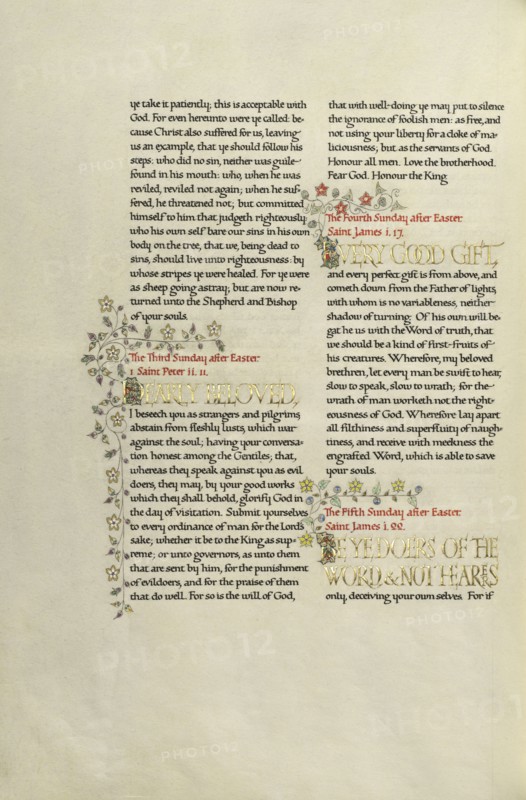 ye take it patiently; this is acceptable with
God. For even hereunto were ye called: be-
cause Christ also suffered for us, leaving
us an example, that ye should follow his
steps: who did no sin, neither was guile
found in his mouth: who, when he was
reviled, reviled not again; when he suf-
fered, he threatened not; but committed
himself to him that judgeth righteously:
who his own self bare our sins in his own
body on the tree, that we, being dead to
sins, should live unto righteousness: by
whose stripes ye were healed. For ye were
as sheep going astray; but are now re-
turned unto the Shepherd and Bishop
of your souls.
The Third Sunday after Easter.
1 Saint Peter ii. 11.
DEARLY BELOVED,
I beseech you as strangers and pilgrims,
abstain from fleshly lusts, which war
against the soul; having your conversa-
tion honest among the Gentiles; that,
whereas they speak against you as evil
doers, they may, by your good works
which they shall behold, glorify God in
the day of visitation. Submit yourselves
to every ordinance of man for the Lord's
sake; whether it be to the King as sup-
reme; or unto governors, as unto them
that are sent by him, for the punishment
of evildoers, and for the praise of them
that do well. For so is the will of God,
that with well-doing ye may put to silence
the ignorance of foolish men: as free, and
not using your liberty for a cloke of ma-
liciousness; but as the servants of God.
Honour all men. Love the brotherhood.
Fear God. Honour the King.
The Fourth Sunday after Easter.
Saint James i. 17.
EVERY GOOD GIFT,
and every perfect gift is from above, and
cometh down from the Father of lights,
with whom is no variableness, neither
shadow of turning. Of his own will be-
gat he us with the Word of truth, that
we should be a kind of first-fruits of
his creatures. Wherefore, my beloved
brethren, let every man be swift to hear,
slow to speak, slow to wrath; for the
wrath of man worketh not the right-
eousness of God. Wherefore lay apart
all filthiness and superfluity of naugh-
tiness, and receive with meekness the
engraffed Word, which is able to save
your souls.
The Fifth Sunday after Easter.
Saint James i. 22.
BE YE DOERS OF THE
WORD, & NOT HEARERS
only, deceiving your own selves. For if
PHOTO12